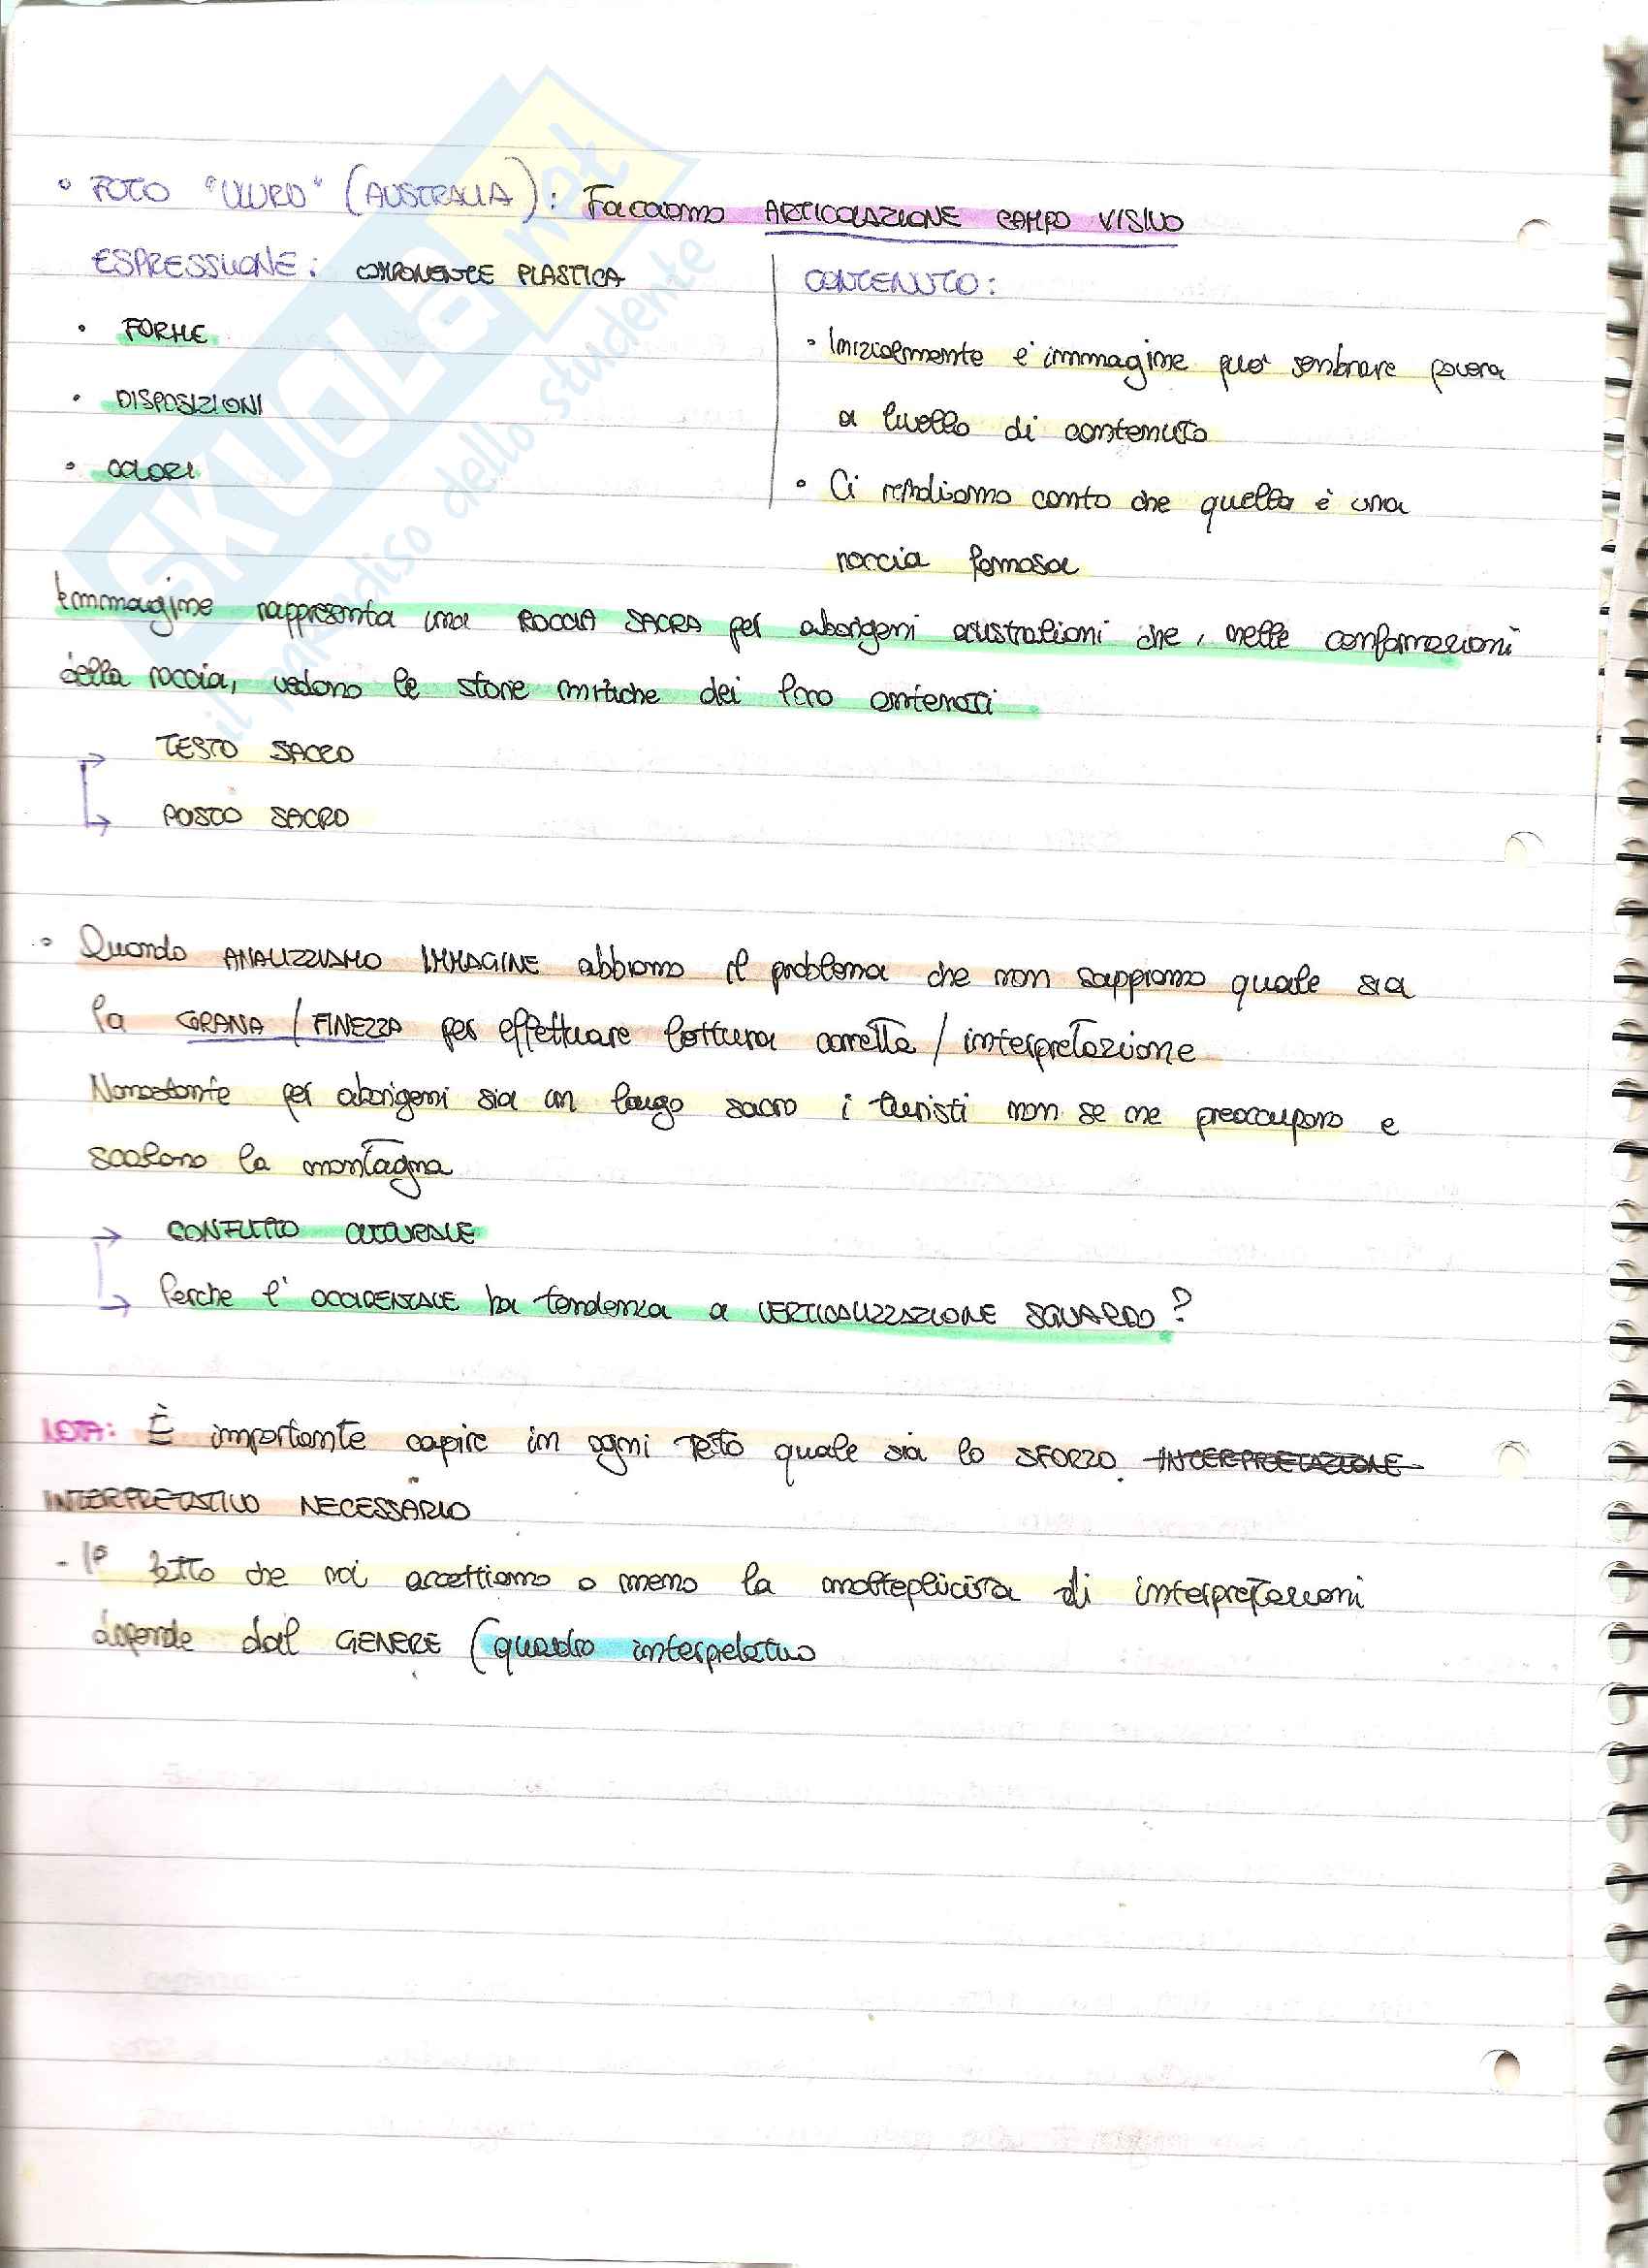 • FOTO "ULURO" (AUSTRALIA): Facciamo ARTICOLAZIONE CAMPO VISIVO
ESPRESSIONE: COMPONENTE PLASTICA
• FORME
• DISPOSIZIONI
• COLORI
CONTENUTO:
• Inizialmente l'immagine può sembrare povera
a livello di contenuto
• Ci rendiamo conto che quella è una
roccia famosa
L'immagine rappresenta una ROCCIA SACRA per aborigeni australiani che, nelle conformazioni
della roccia, vedono le storie mitiche dei loro antenati
→ TESTO SACRO
→ POSTO SACRO
• Quando ANALIZZIAMO IMMAGINE abbiamo il problema che non sappiamo quale sia
la GRANA / FINEZZA per effettuare lettura corretta / interpretazione
Nonostante per aborigeni sia un luogo sacro i turisti non se ne preoccupano e
scalano la montagna
→ CONFLITTO CULTURALE
→ Perche l'OCCIDENTALE ha tendenza a VERTICALIZZAZIONE SGUARDO?
NOTA: È importante capire in ogni testo quale sia lo SFORZO INTERPRETAZIONE
INTERPRETATIVO NECESSARIO
- Il fatto che noi accettiamo o meno la molteplicità di interpretazioni
dipende dal GENERE (quadro interpretativo
SKUOLA.net
il paradiso dello studente